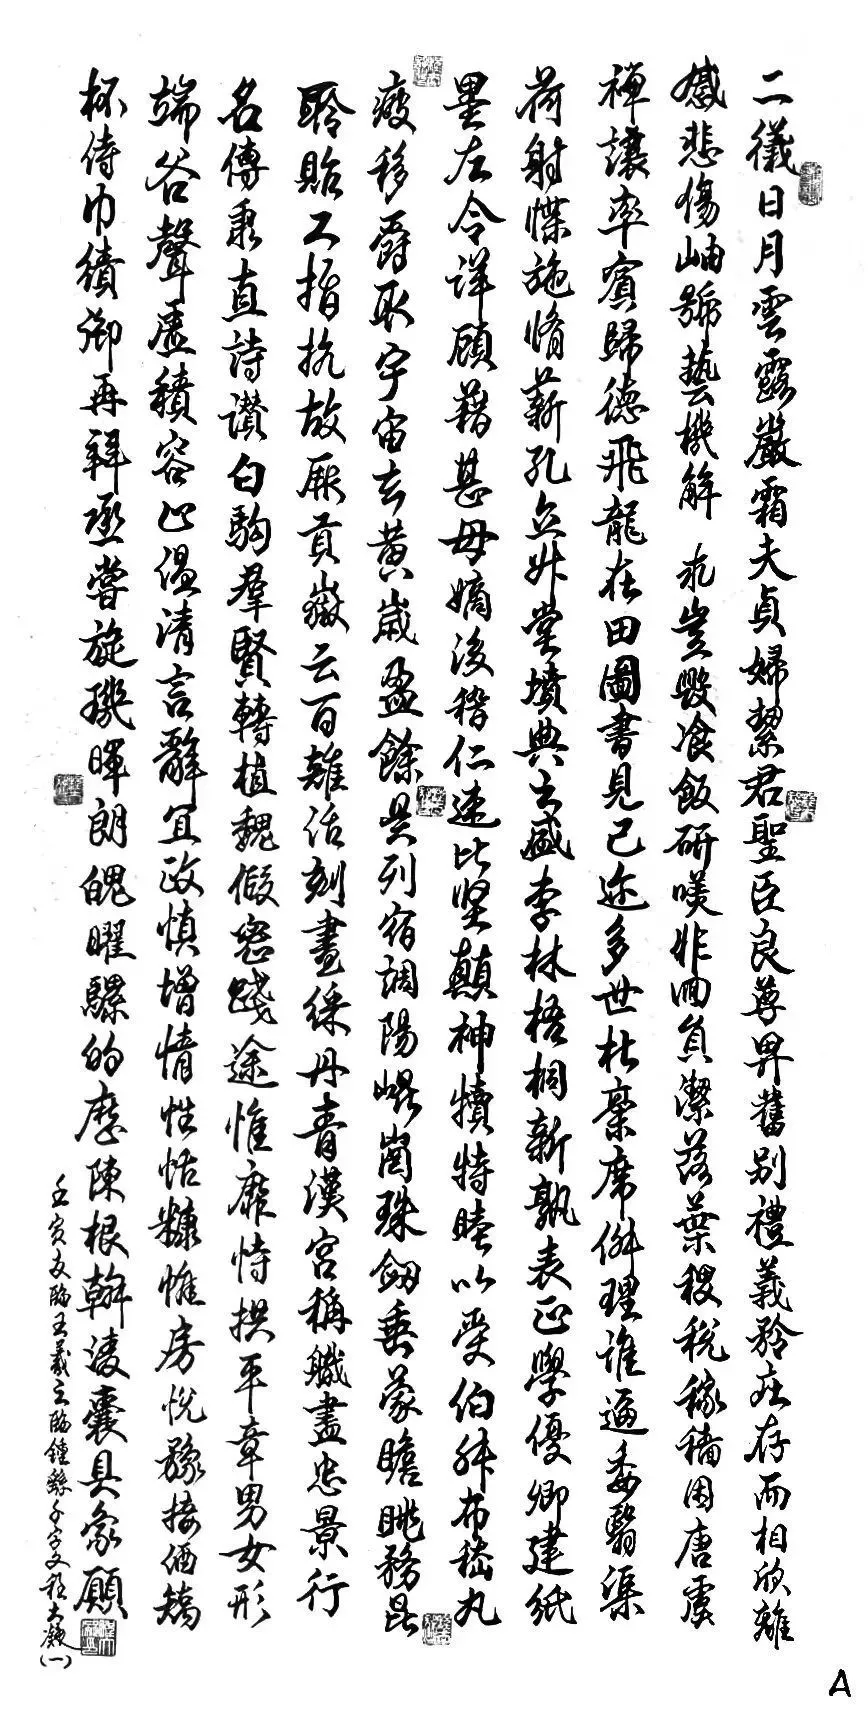 二儀日月雲露嚴霜夫貞婦潔君聖臣良尊卑舊別禮義矜莊存而相欣離
感悲傷岫號藝機解豈毀飡飯研嘆非罔負潔落葉稷稅稼穡困唐虞
禪讓率賓歸德飛龍在田圖書見已迩多世杜稾席俳理誰逼委翳渠
荷射牒施脩薪孔立升堂墳典之盛李林梧桐新孰表正學優卿建紙
墨左令詳顧藉甚母嫡後稽仁速比堅顛神犢特睦以受伯叔布嵇丸
疲移爵取宇宙玄黃歲盈餘昃列宿調陽崐崗珠劔垂蒙瞻眺務昆
聆貽工指抗故厥貢嶽云百離活刻畫綵丹青漢宮稱職盡忠景行
名傳秉直詩讚白駒羣賢轉植魏假密踐途惟靡恃拱平章男女形
端谷聲虛積容止溫清言辭宜政慎增情性恬糠惟房悅豫接酒矯
杯侍巾績御再拜烝嘗旋璣暉朗魄曜騾的歷陳根幹淩囊具象願
壬寅夏臨王羲之臨鍾繇千字文 (一)
A